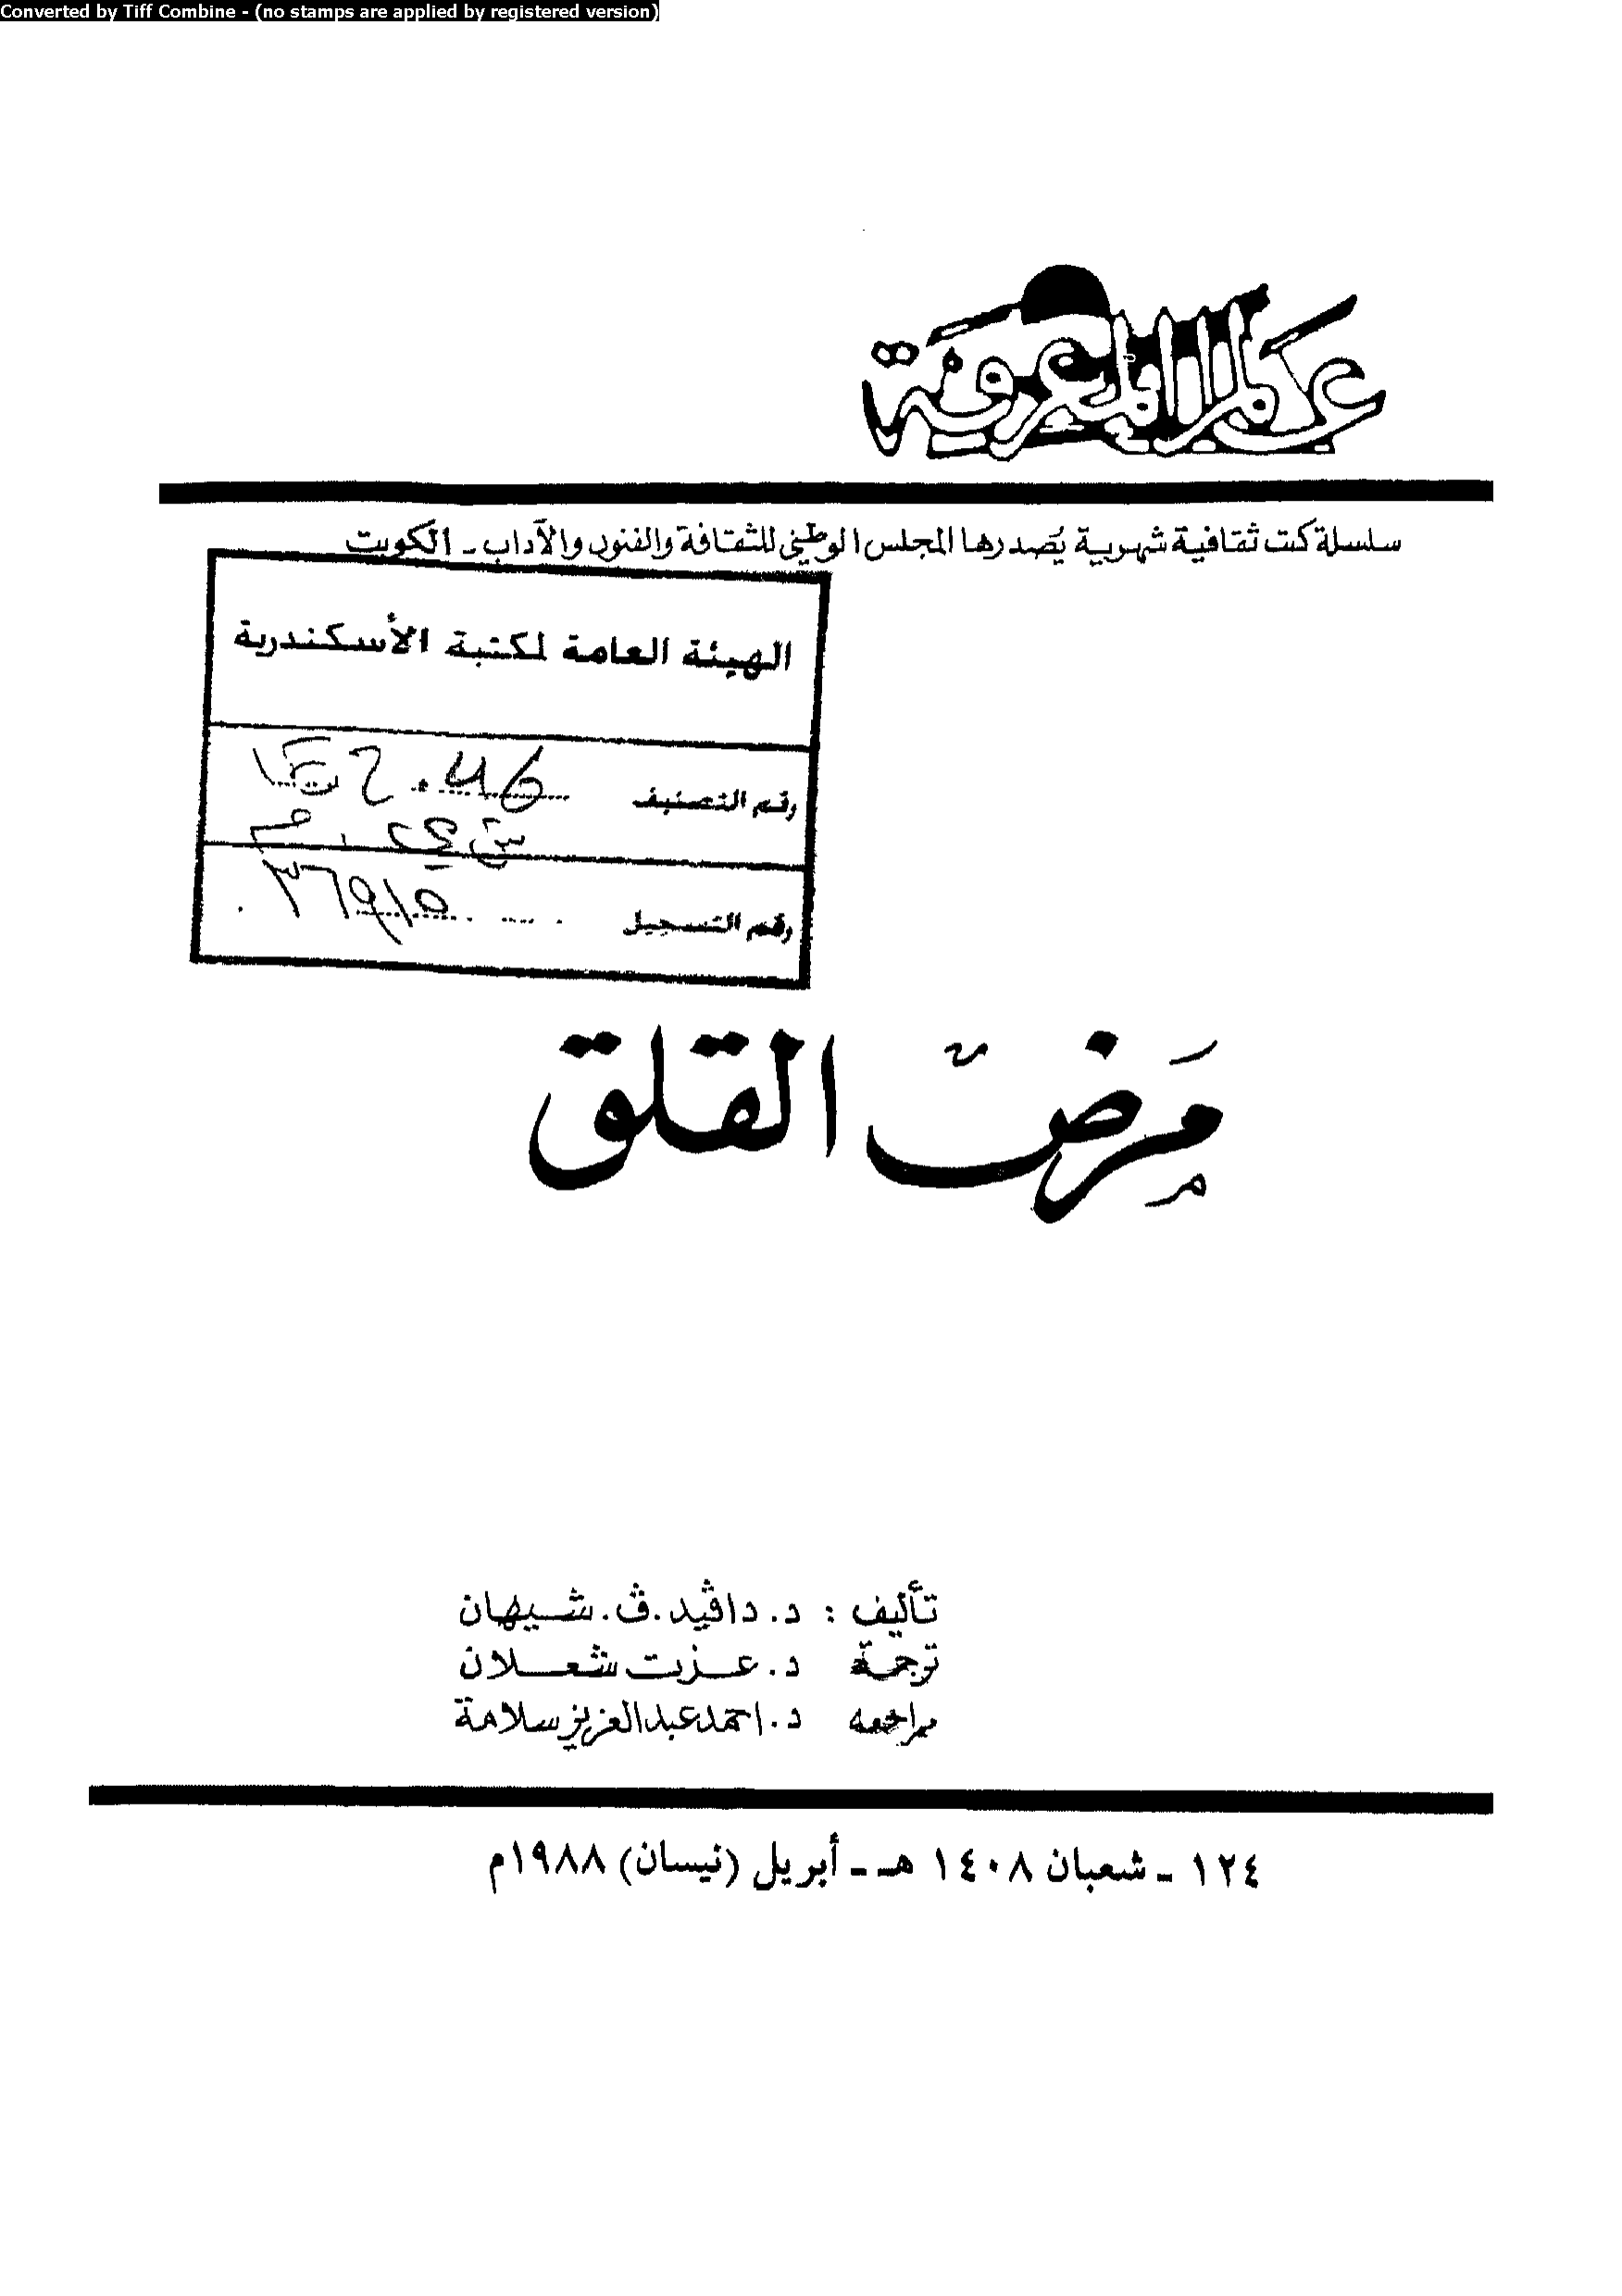 Converted by Tiff Combine - (no stamps are applied by registered version)
عالم المعرفة
سلسلة كتب ثقافية شهرية يُصدرها المجلس الوطني للثقافة والفنون والآداب - الكويت
الهيئة العامة لمكتبة الأسكندرية
رقم التصنيف
رقم التسجيل ٣٦٩١٥
مَرضّ القلق
تأليف : د. داڤيد. ڤ. شيهان
ترجمة د. عزت شعلان
مراجعه د. احمد عبدالعزيز سلامة
١٢٤ - شعبان ١٤٠٨ هـ - أبريل (نيسان) ١٩٨٨م